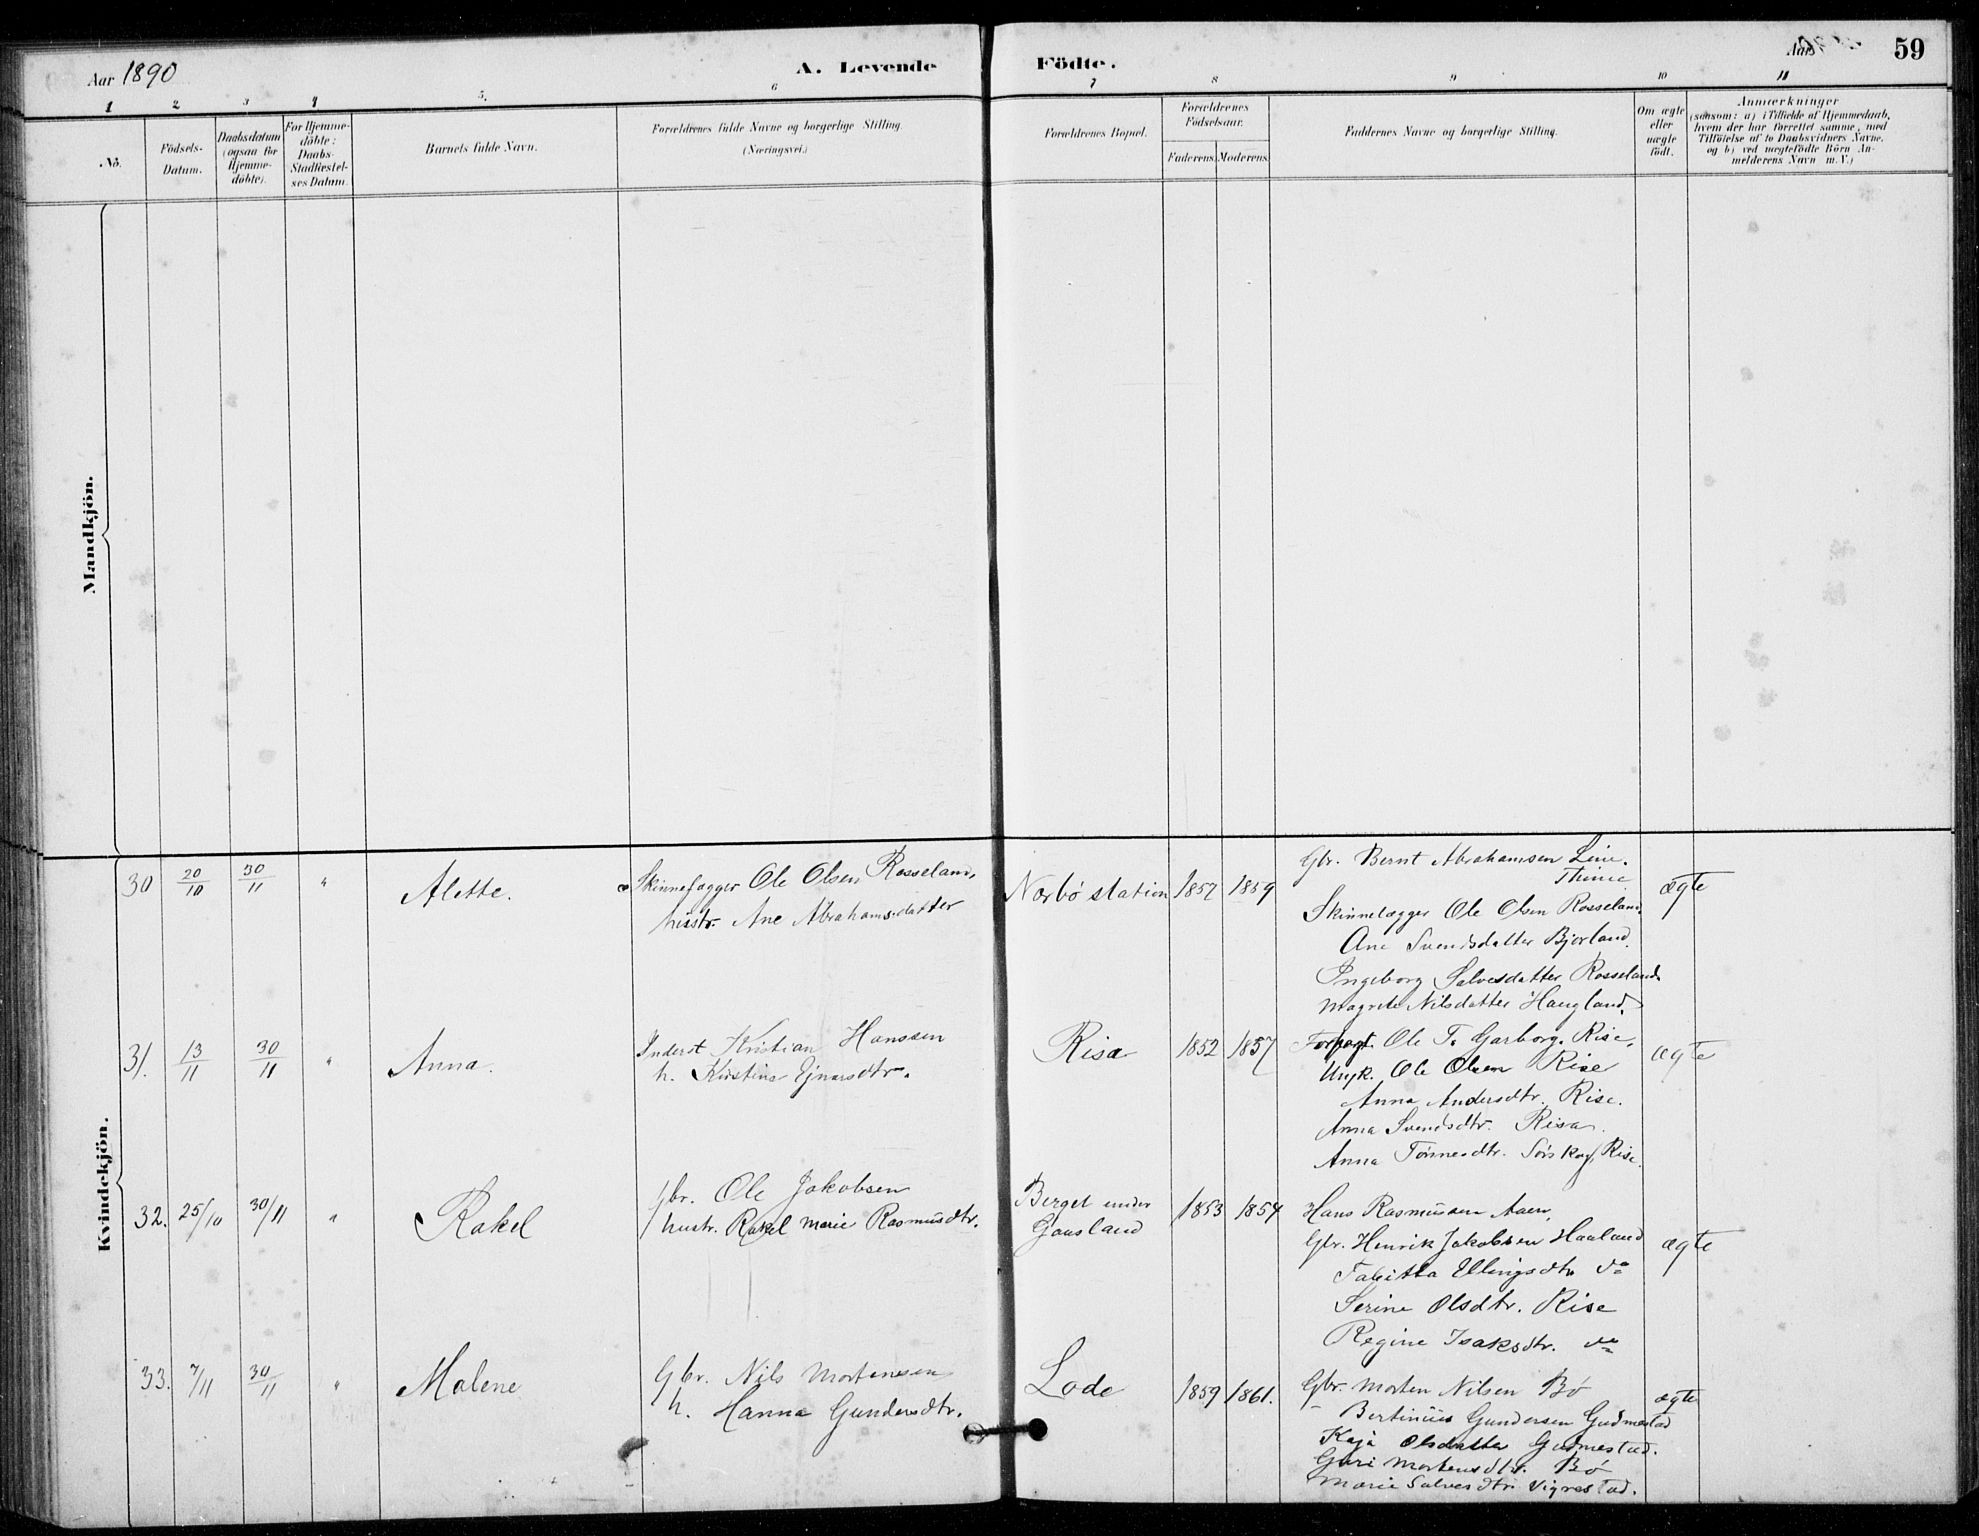 Aar 1890
A. Levende Födte.
Aar
59
1 2 3 4 5. 6 7 8 9 10 11
No.
Födsels-
Datum.
Daabsdatum
(ogsaa for
Hjemme-
döbte).
For Hjemme-
döbte:
Daabs-
Stadfæstel-
ses Datum.
Barnets fulde Navn.
Forældrenes fulde Navne og borgerlige Stilling.
(Næringsvei.)
Forældrenes Bopæl.
Forældrenes
Födselsaar.
Faderens. Moderens.
Faddernes Navne og borgerlige Stilling.
Om ægte
eller
uægte
födt.
Anmærkninger
(saasom: a) i Tilfælde af Hjemmedaab,
hvem der har forrettet samme, med
Tilföielse af to Daabsvidners Navne,
og b) ved uægtefödte Börn An-
melderens Navn m. V.)
Mandkjön.
Kvindekjön.
30 20/10 30/11 " Alette.
Skinnefægger Ole Olsen Rosseland,
hustr. Ane Abrahamsdatter
Nærbö station 1857 1859
Gbr. Bernt Abrahamsen Line.
Thime
Skinnelægger Ole Olsen Rosseland.
Ane Svendsdatter Bjorland.
Ingeborg Salvesdatter Rosseland.
Magrete Nilsdatter Haugland.
ægte
31. 13/11 30/11 " Anna.
Inderst Kristian Hanssen
h. Kirstine Ejnarsdtr.
Risa 1852 1857
Forpagt. Ole T. Garborg. Rise.
Ungk. Ole Olsen Rise
Anna Andersdtr. Rise.
Anna Svendsdtr. Risa.
Anna Tönnesdtr. Rise.
ægte
32. 25/10 30/11 " Rakel
Gbr. Ole Jakobsen
hustr. Rakel Marie Rasmusdtr.
Berget under
Gausland
1853 1854
Hans Rasmussen Aaen,
Gbr. Henrik Jakobsen Haaland
Tabitta Ellingsdtr do
Serine Olsdtr. Rise
Regine Isaksdtr. do
ægte
33. 7/11 30/11 " Malene
Gbr. Nils Mortensen
h. Hanna Gundersdtr.
Lode 1859 1861.
Gbr. Morten Nilsen Bö
Bertinius Gundersen Gudmestad
Kaja Olsdatter Gudmestad.
Guri Mortensdtr. Bö
Marie Salvesdtr. Vigrestad.
ægte